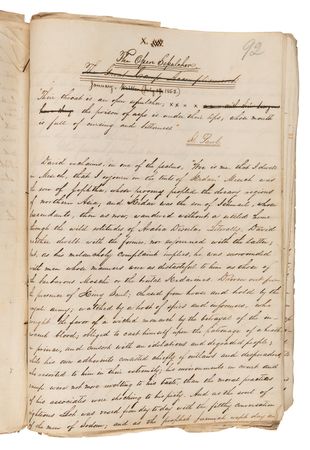 X.
92
The Open Sepulchre.
January, 1852.
"Their throat is an open sepulchre; x x x x
the poison of asps is under their lips; whose mouth
is full of cursing and bitterness"
St. Paul.
David exclaims, in one of the psalms, "Woe is me that I dwell
in Mesech, that I sojourn in the tents of Kedar." Mesech was
the son of Japhthet whose progeny peopled the dreary regions
of northern Asia, and Kedar was the son of Ishmael; whose
descendants, then as now, wandered without a settled home
through the wild solitudes of Arabia Deserta. Literally, David
neither dwelt with the former, nor sojourned with the latter;
but, as his melancholy complaint implies, he was surrounded
with men whose manners were as distasteful to him as those of
the barbarous Moschi or the brutal Kedarenes. Driven out from
the presence of King Saul; chased from house and hold by the
royal army; watched by a host of spies and informers, who
sought the favor of a wicked monarch by the betrayal of the in-
nocent blood; obliged to cast himself upon the patronage of a heathen
prince, and consort with an idolatrous and degraded people;
while his own adherents consisted chiefly of outlaws and desperadoes
who resorted to him in their extremity; his environments in court and
camp were not more revolting to his taste, than the moral practices
of his associates were shocking to his piety. And as the soul of
righteous Lot was vexed from day to day with the filthy conversation
of the men of Sodom; and as the prophet Jeremiah wept day and